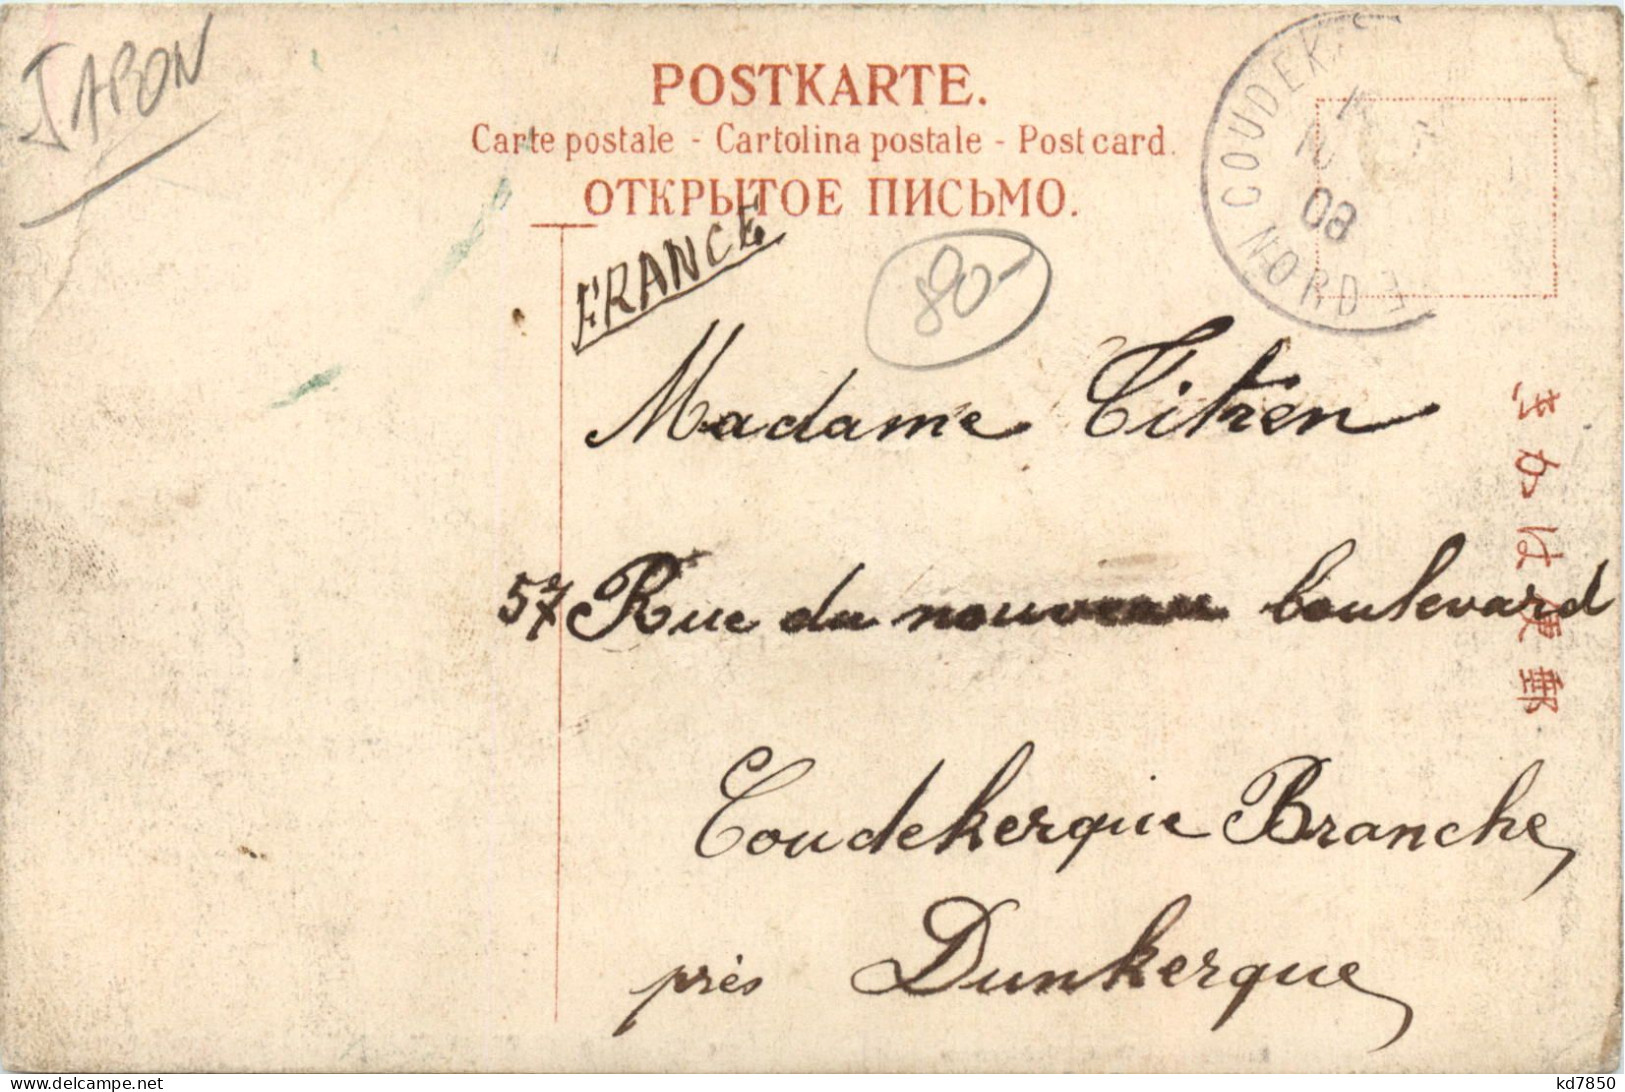 JAPON
POSTKARTE.
Carte postale - Cartolina postale - Post card.
ОТКРЫТОЕ ПИСЬМО.
FRANCE
890-
COUDEK
08
NORD
Madame Titren
57 Rue du nouveau boulevard
Coudekerque Branche
près Dunkerque
郵便はかき
kd7850